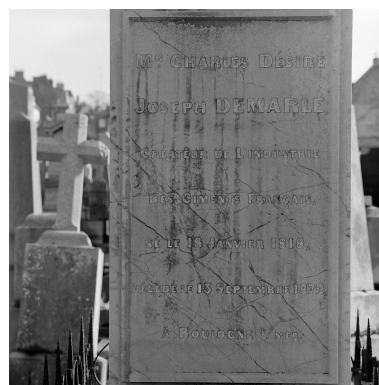 Mr CHARLES DÉSIRÉ
JOSEPH DEMARLE
CRÉATEUR DE L'INDUSTRIE
DES CIMENTS FRANÇAIS,
NÉ LE 18 JANVIER 1818,
DÉCÉDÉ LE 13 SEPTEMBRE
À BOULOGNE S/MER